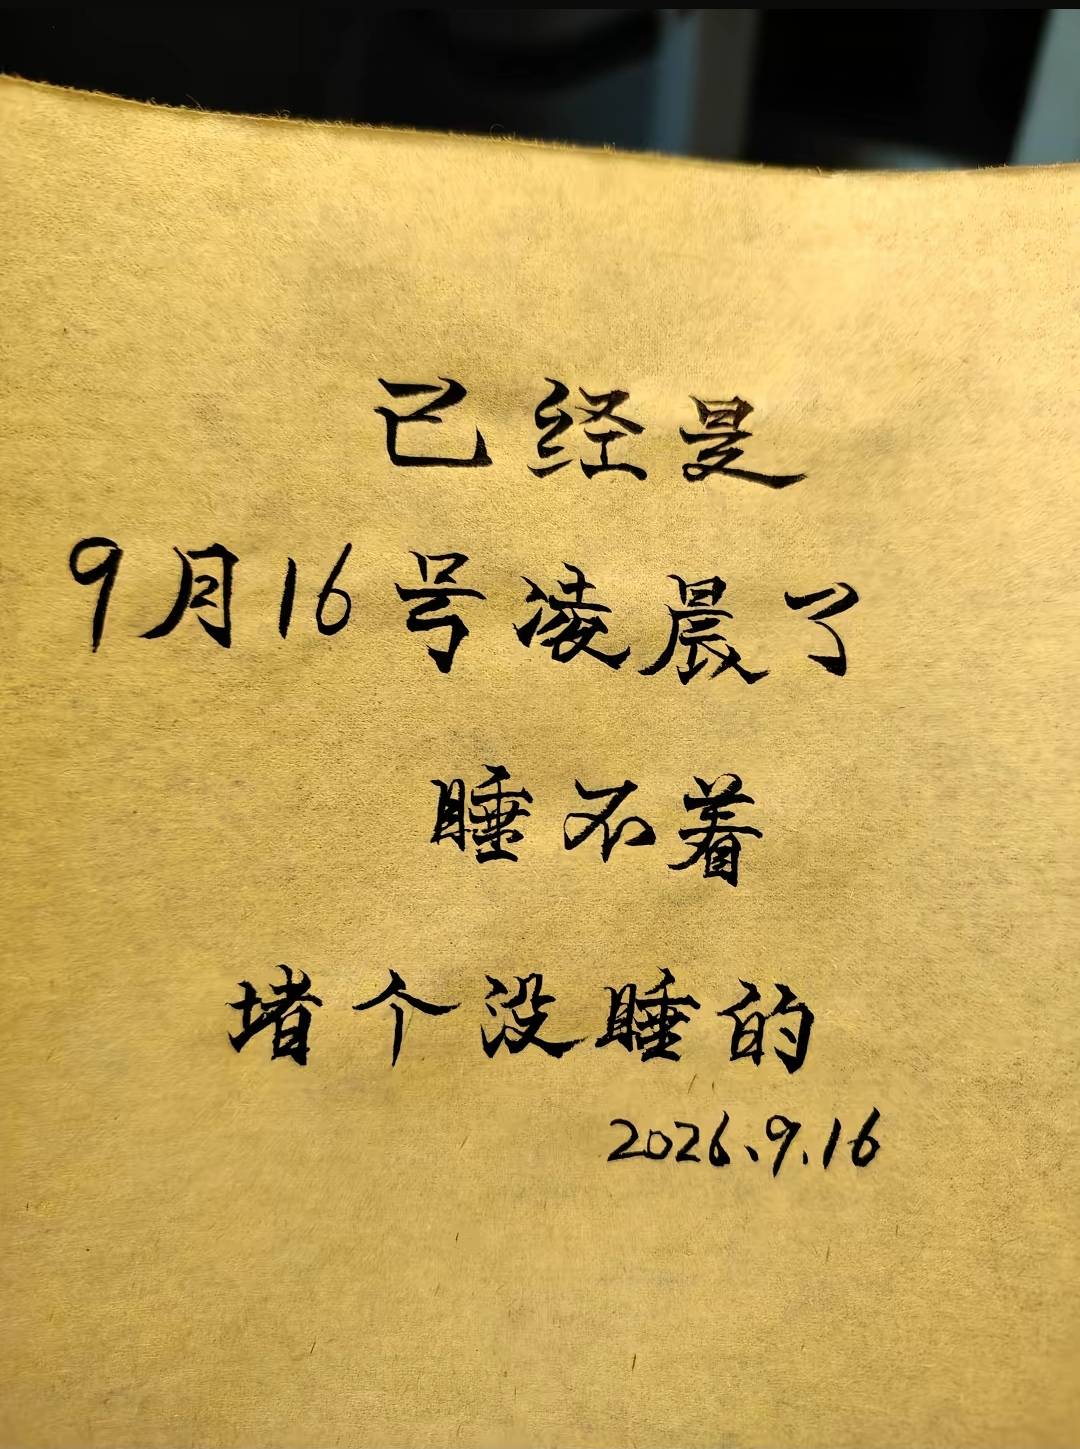 已经是
9月16号凌晨了
睡不着
堵个没睡的
2026.9.16